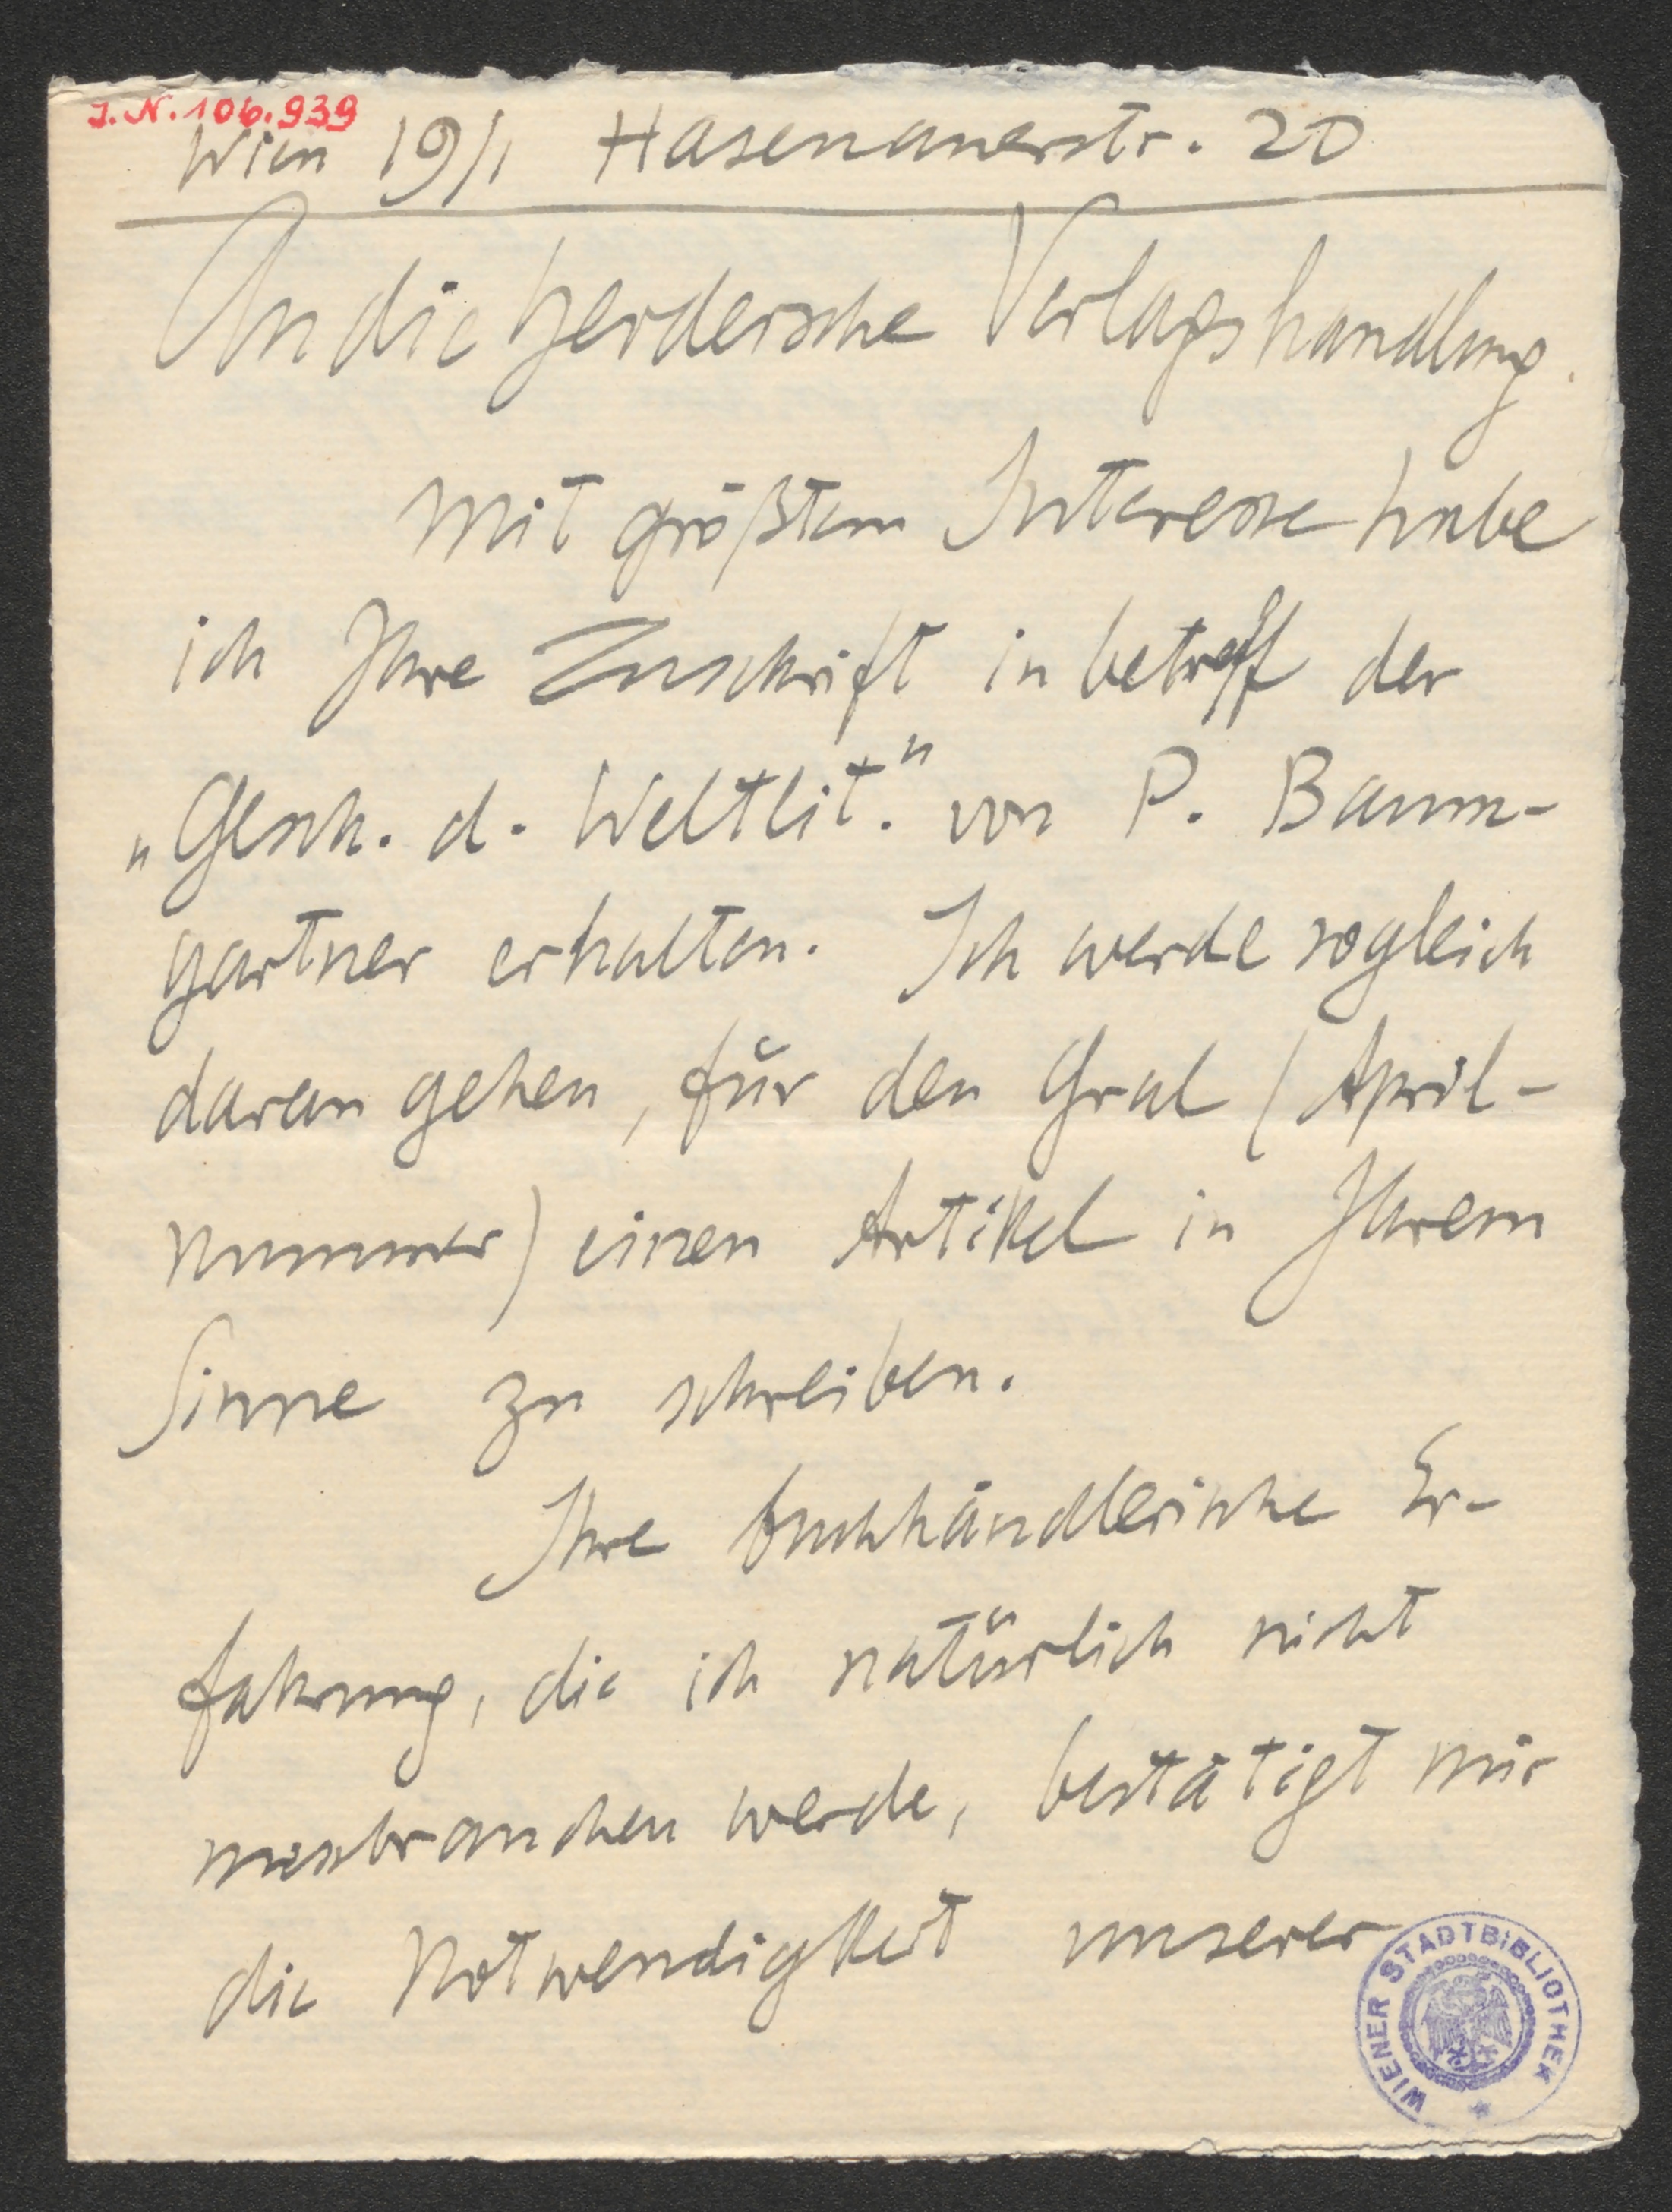 J.N. 106.939
Wien 19/1 Hasenauerstr. 20
An die Herdersche Verlagshandlung.
Mit größtem Interesse habe
ich Ihre Zuschrift in betreff der
„Gesch. d. Weltlit." von P. Baum-
gartner erhalten. Ich werde sogleich
daran gehen, für den Gral (April-
nummer) einen Artikel in Ihrem
Sinne zu schreiben.
Ihre buchhändlerische Er-
fahrung, die ich natürlich nicht
missbrauchen werde, bestätigt mir
die Notwendigkeit unserer
WIENER STADTBIBLIOTHEK